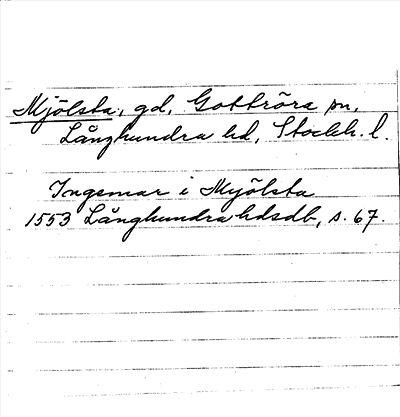 Mjölsta, gd, Gottröra sn,
Långhundra hd, Stockh. l.
Ingemar i Myölsta
1553 Långhundra hdsdb, s. 67.